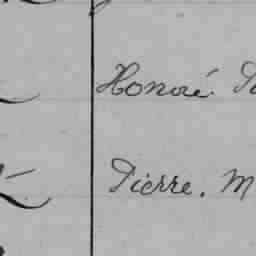 Honoré
Pierre. M